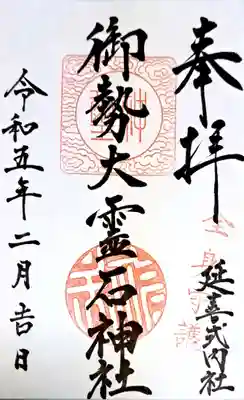 奉拝
全身守護
延喜式内社
御勢大霊石神社
令和五年二月吉日